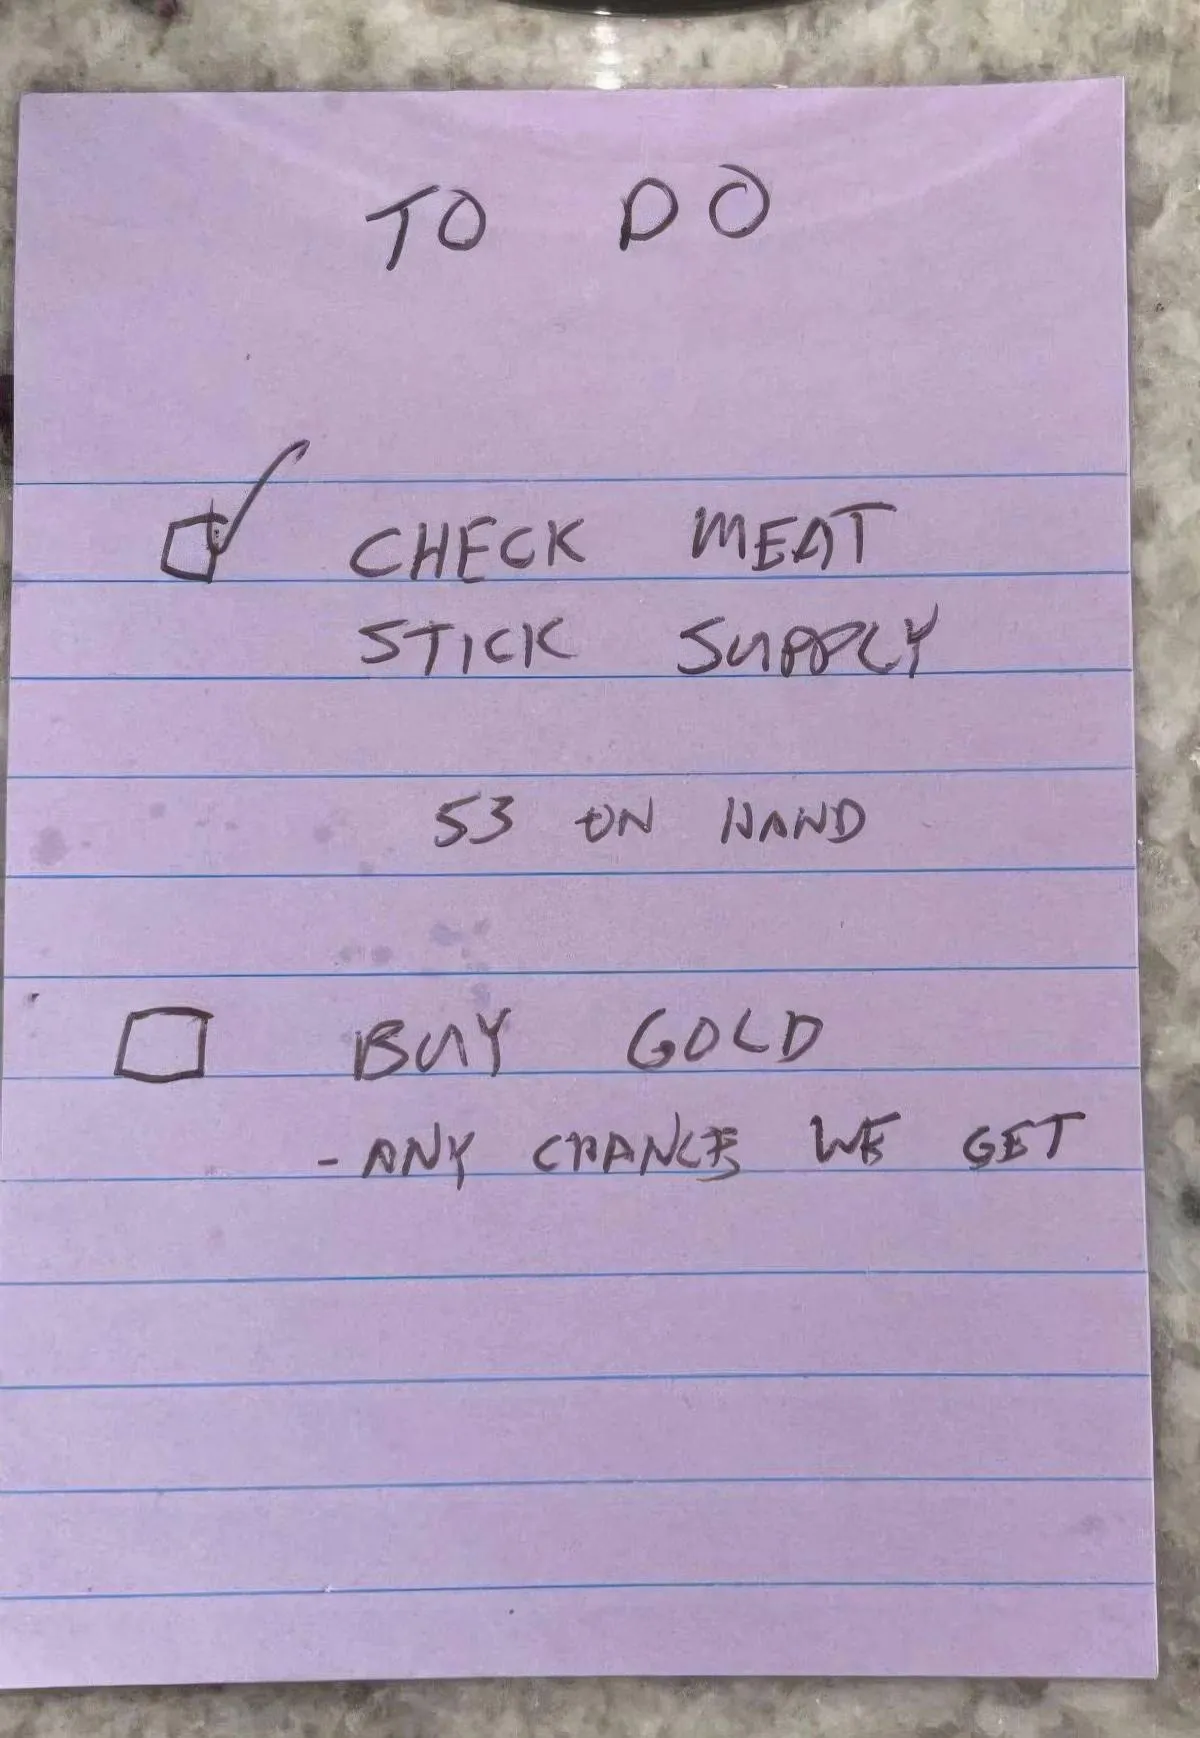 TO DO
CHECK MEAT
STICK SUPPLY
53 ON HAND
BUY GOLD
- ANY CHANCE WE GET